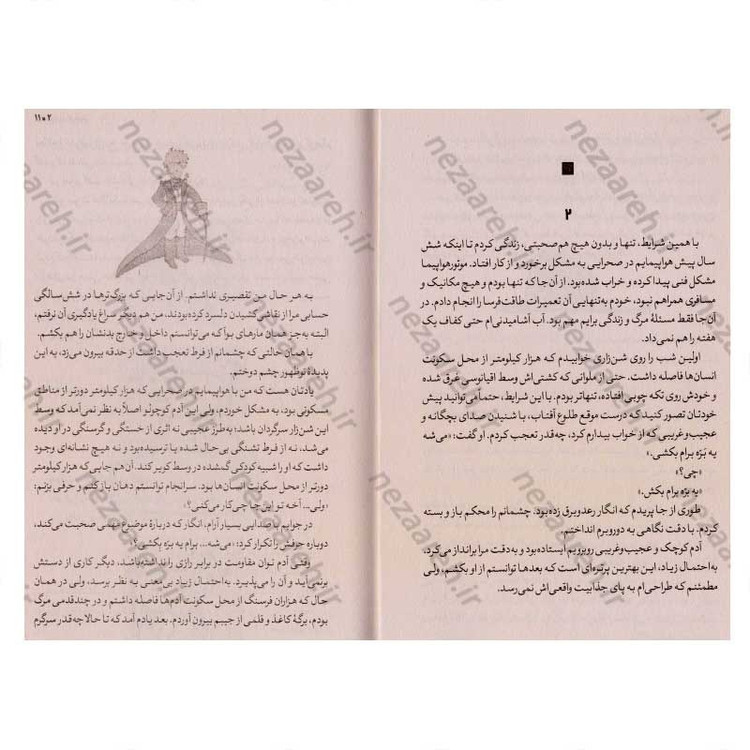 ۲
با همین شرایط، تنها و بدون هیچ هم‌صحبتی، زندگی کردم تا اینکه شش
سال پیش هواپیمایم در صحرایی به مشکل برخورد و از کار افتاد. موتور هواپیما
مشکل فنی پیدا کرده و خراب شده بود. از آن‌جا که تنها بودم و هیچ مکانیک و
مسافری همراهم نبود، خودم به‌تنهایی آن تعمیرات طاقت‌فرسا را انجام دادم. در
آن‌جا فقط مسئلهٔ مرگ و زندگی برایم مهم بود. آب آشامیدنی‌ام حتی کفاف یک
هفته را هم نمی‌داد.
اولین شب را روی شن‌زاری خوابیدم که هزار کیلومتر از محل سکونت
انسان‌ها فاصله داشت. حتی از ملوانی که کشتی‌اش وسط اقیانوسی غرق شده
و خودش روی تکه چوبی افتاده، تنهاتر بودم. با این شرایط، حتماً می‌توانید پیش
خودتان تصور کنید که درست موقع طلوع آفتاب، با شنیدن صدای بچگانه و
عجیب‌وغریبی که از خواب بیدارم کرد، چه‌قدر تعجب کردم. او گفت: «می‌شه
یه بَرّه برام بکشی.»
«چی؟»
«یه بَرّه برام بکش.»
طوری از جا پریدم که انگار رعدوبرق زده بود. چشمانم را محکم باز و بسته
کردم. با دقت نگاهی به دوروبرم انداختم.
آدم کوچک و عجیب‌وغریبی روبرویم ایستاده بود و به‌دقت مرا برانداز می‌کرد.
به‌احتمال زیاد، این بهترین پرتره‌ای است که بعدها توانستم از او بکشم، ولی
مطمئنم که طراحی‌ام به پای جذابیت واقعی‌اش نمی‌رسد.
۲ • ۱۱
به هر حال من تقصیری نداشتم. از آن‌جایی که بزرگ‌ترها در شش‌سالگی
حسابی مرا از نقاشی کشیدن دلسرد کرده بودند، من هم دیگر سراغ یادگیری آن نرفتم،
البته به‌جز همان مارهای بوآ که می‌توانستم داخل و خارج بدنشان را هم بکشم.
با همان حالتی که چشمانم از فرط تعجب داشت از حدقه بیرون می‌زد، به این
پدیدهٔ نوظهور چشم دوختم.
یادتان هست که من با هواپیمایم در صحرایی که هزار کیلومتر دورتر از مناطق
مسکونی بود، به مشکل خوردم، ولی این آدم کوچولو اصلاً به نظر نمی‌آمد که وسط
این شن‌زار سرگردان باشد؛ به‌طرز عجیبی نه اثری از خستگی و گرسنگی در او دیده
می‌شد، نه از فرط تشنگی بی‌حال شده یا ترسیده بود و نه هیچ نشانه‌ای وجود
داشت که او را شبیه کودکی گم‌شده در وسط کویر کند، آن هم جایی که هزار کیلومتر
دورتر از محل سکونت انسان‌ها بود. سرانجام توانستم دهان باز کنم و حرفی بزنم:
«ولی... آخه تو این‌جا چی‌کار می‌کنی؟»
در جوابم با صدایی بسیار آرام، انگار که دربارهٔ موضوع مهمی صحبت می‌کند،
دوباره حرفش را تکرار کرد: «می‌شه... برام یه بَرّه بکشی؟»
وقتی آدم توان مقاومت در برابر رازی را نداشته باشد، دیگر کاری از دستش
برنمی‌آید و آن را می‌پذیرد. به‌احتمال زیاد بی‌معنی به نظر برسد، ولی در همان
حال که هزاران فرسنگ از محل سکونت آدم‌ها فاصله داشتم و در چندقدمی مرگ
بودم، برگهٔ کاغذ و قلمی از جیبم بیرون آوردم. بعد یادم آمد که تا حالا چه‌قدر سرگرم
nezaareh.ir